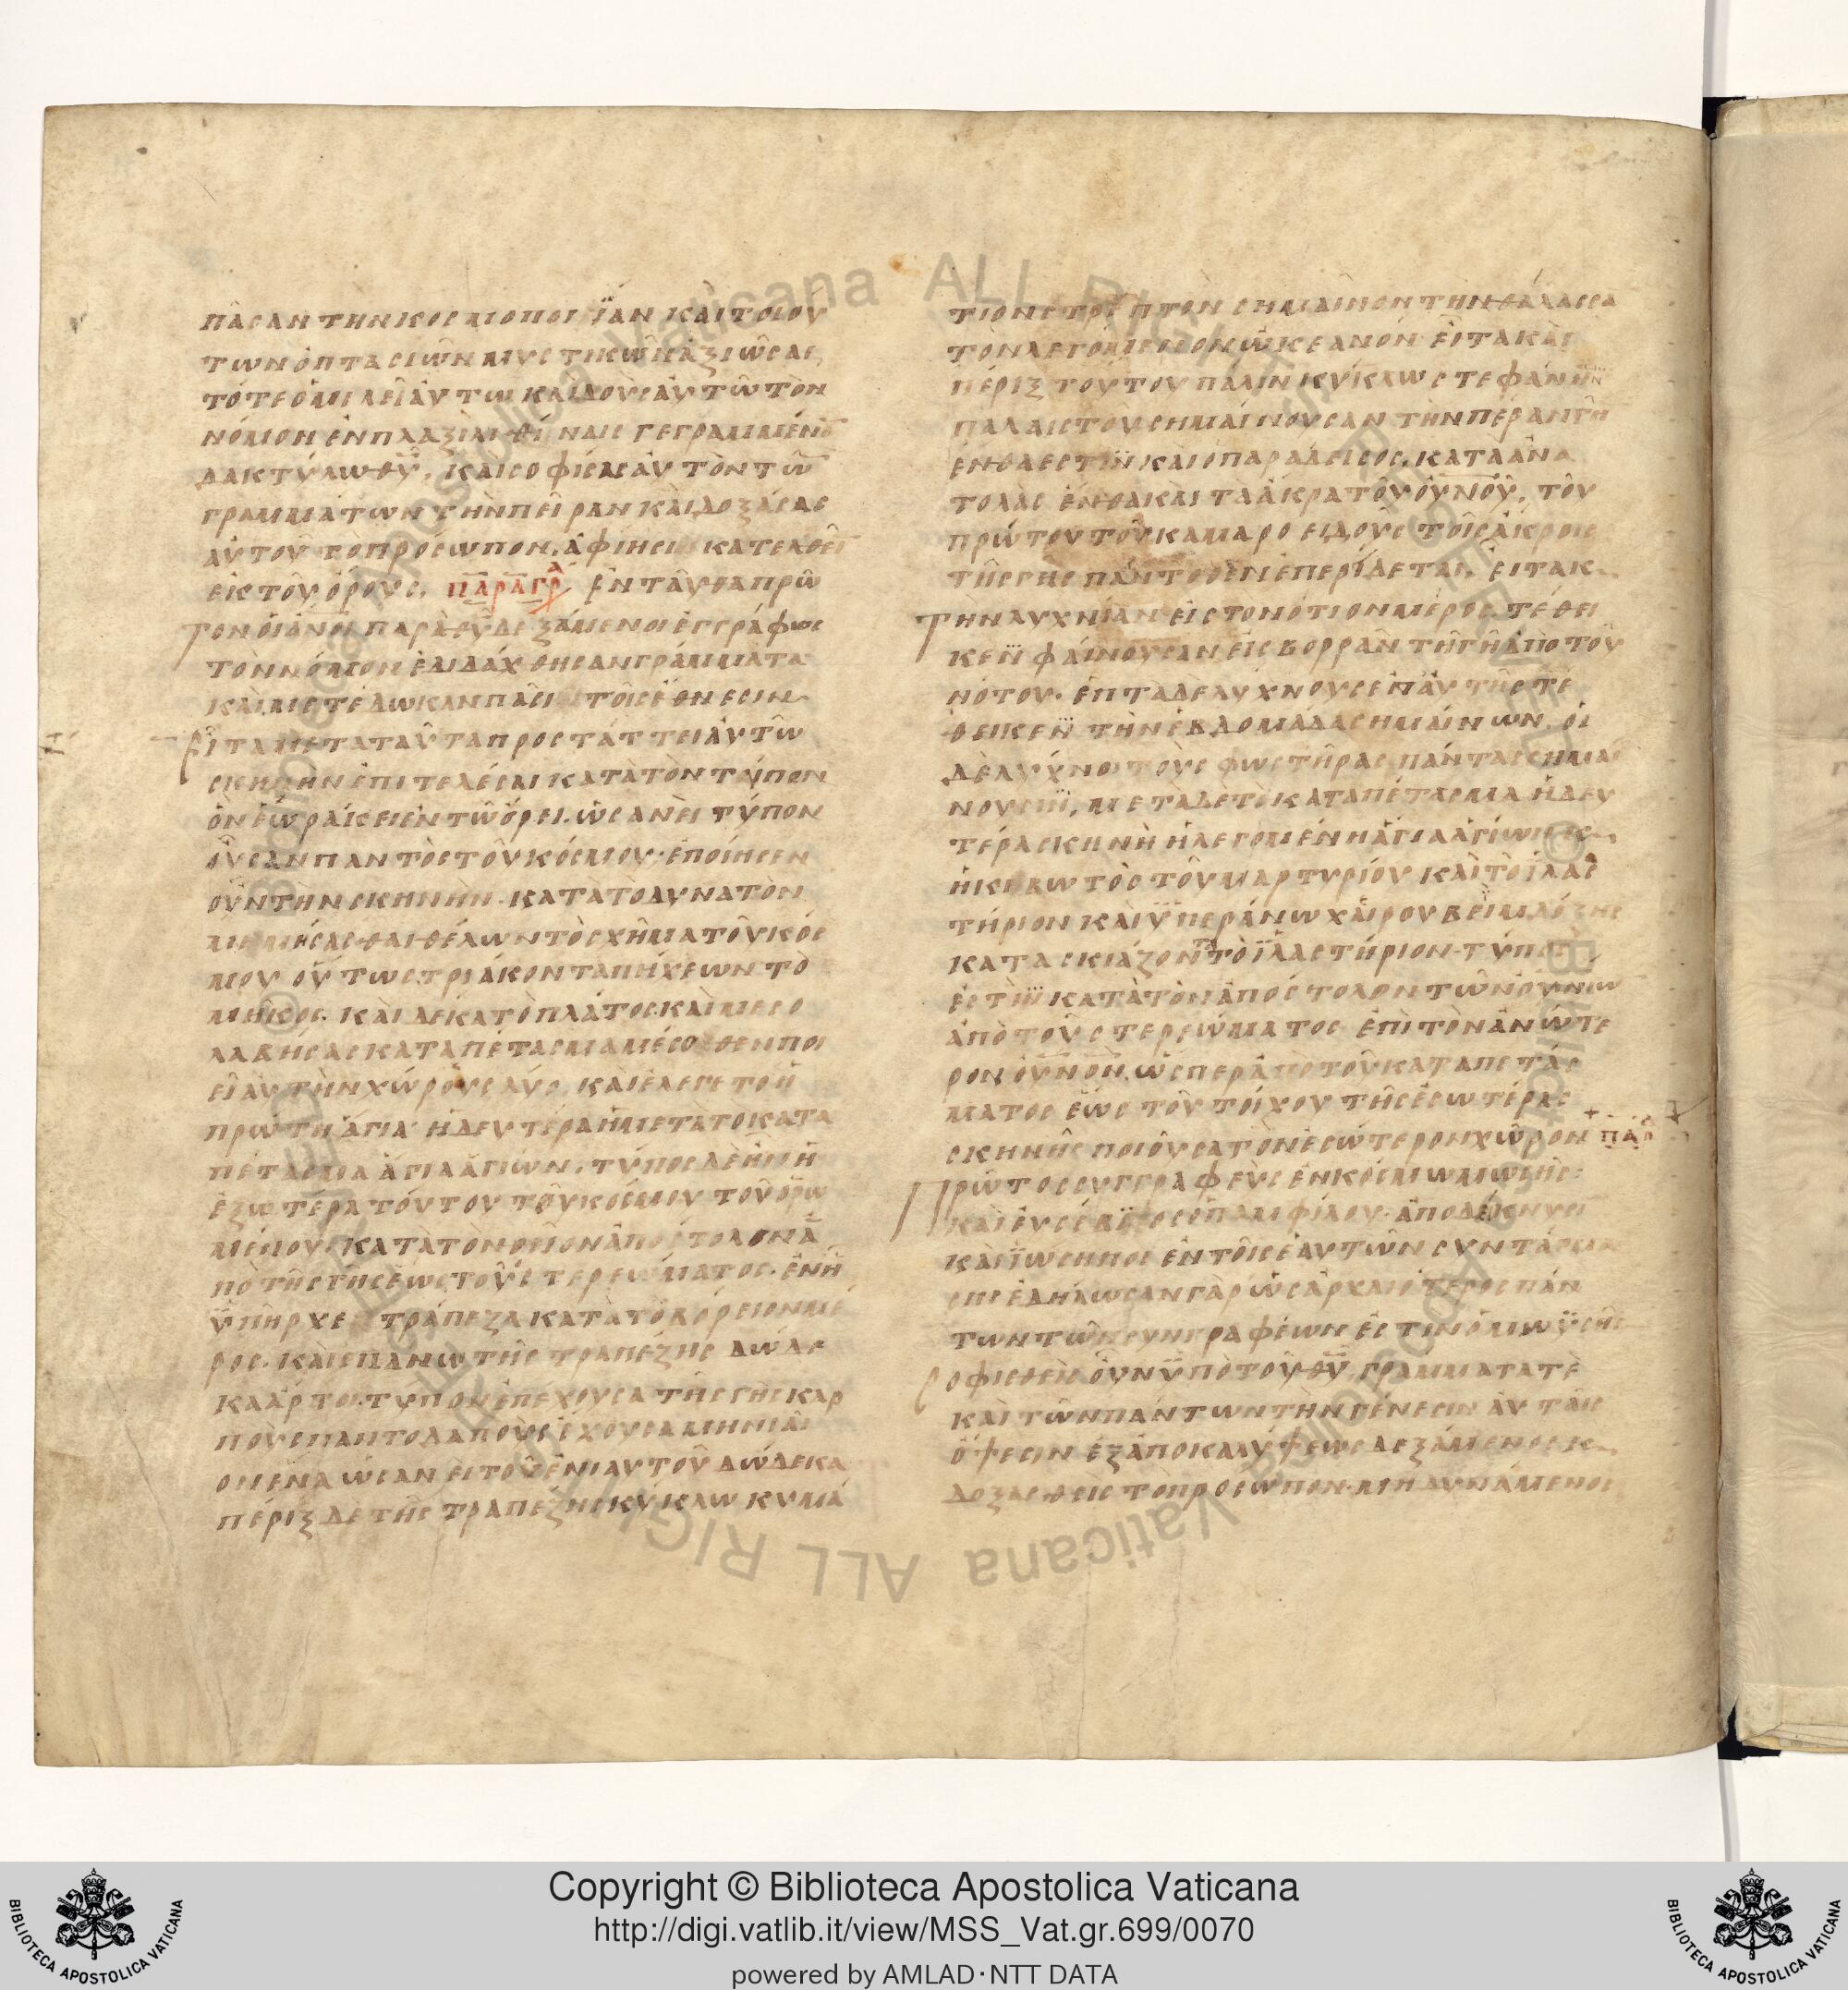 πᾶσαν τὴν κοσμοποιΐαν καὶ τοιού
των ὀπτασιῶν μυστικῶν ἀξιώσας,
τότε ὁμιλεῖ αὐτῶ καὶ δοὺς αὐτῶ τὸν
νόμον ἐν πλαξὶ λιθίναις γεγραμμένο̅
δακτύλω θ̅υ̅, καὶ σοφίσας αὐτὸν τῶ̅
γραμμάτων τὴν πεῖραν καὶ δοξάσας
αὐτοῦ τὸ πρόσωπον, ἀφίησι κατελθεῖ̅
εἰς τοῦ ὄρους. παραγρ ἐνταῦθα πρῶ
τον οἱ ἄνοι παρὰ θ̅υ̅ δεξάμενοι ἐγγράφως
τὸν νόμον ἐδιδάχθησαν γράμματα
καὶ μετέδωκαν πᾶσι τοῖς ἔθνεσιν
εἶτα μετὰ ταῦτα προστάττει αὐτῶ
σκηνὴν ἐπιτελέσαι κατὰ τὸν τύπον
ὃν ἑώρακεν ἐν τῶ ὄρει. ὡσανεὶ τύπον
οὖσαν παντὸς τοῦ κόσμου· ἐποίησεν
οὖν τὴν σκηνὴν· κατὰ τὸ δυνατὸν
μιμήσασθαι θέλων τὸ σχῆμα τοῦ κόσ
μου οὕτως. τριάκοντα πήχεων τὸ
μῆκος. καὶ δέκα τὸ πλάτος. καὶ μεσο
λαβήσας καταπέτασμα μέσοθεν ποι
εῖ αὐτὴν χώρους δύο. καὶ ἐλέγετο ἡ
πρώτη ἅγια· ἡ δευτέρα ἡ μετὰ τὸ κατα
πέτασμα ἅγια ἁγίων. τύπος δὲ ἦν ἡ
ἐξωτέρα τούτου τοῦ κόσμου τοῦ ὁρω
μένου· κατὰ τὸν θεῖον ἀπόστολον ἀ
πὸ τῆς γῆς ἕως τοῦ στερεώματος. ἐν ἧ
ὑπῆρχεν τράπεζα κατὰ τὸ βόρειον μέ
ρος. καὶ ἐπάνω τῆς τραπέζης δώδε
κα ἄρτοι. τύπον ἐπέχουσα τῆς γῆς καρ
ποὺς παντοδαποὺς ἔχουσα μηνιαῖ
ον ἕνα ὡσανεὶ τοῦ ἐνιαυτοῦ δώδεκα
πέριξ δὲ τῆς τραπέζης κύκλω κυμά
τιον στρεπτὸν σημαῖνον τὴν θάλασσα
τὸν λεγόμενον ὠκεανόν εἶτα καὶ
πέριξ τούτου πάλιν κύκλω στεφάνην
παλαιστοῦ σημαίνουσαν τὴν πέραν γῆ̅
ἔνθα ἐστὶν καὶ ὁ παράδεισος, κατὰ ἀνα
τολὰς ἔνθα καὶ τὰ ἄκρα τοῦ οὐνοῦ, τοῦ
πρώτου τοῦ καμαροειδοῦς τοῖς ἄκροις
τῆς γῆς πάντοθεν ἐπερίδεται, εἶτα κ
τὴν λυχνίαν εἰς τὸ νότιον μέρος τέθει
κεν φαίνουσαν εἰς βορρᾶν τῆ γῆ ἀπὸ τοῦ
νότου. ἑπτὰ δὲ λύχνους ἐπ' αὐτῆς τέ
θεικεν τὴν ἑβδομάδα σημαίνων, οἱ
δὲ λύχνοι τοὺς φωστῆρας πάντας σημαί
νουσιν, μετὰ δὲ τὸ καταπέτασμα ἡ δευ
τέρα σκηνὴ ἡ λεγομένη ἅγια ἁγίων κ
ἡ κιβωτὸς τοῦ μαρτυρίου καὶ τὸ ἱλασ
τήριον καὶ ὑπεράνω χαίρουβεὶμ δόξης
κατασκιάζοντα τὸ ἱλαστήριον· τύπος
ἐστὶν κατὰ τὸν ἀπόστολον τῶν οὐνίω
ἀπὸ τοῦ στερεώματος ἐπὶ τὸν ἀνώτε
ρον οὐνον. ὥσπερ ἀπὸ τοῦ καταπετάσ
ματος ἕως τοῦ τοίχου τῆς ἐσωτέρας
σκηνῆς ποιοῦσα τὸν ἐσώτερον χῶρον παρ
πρῶτος συγγραφεὺς ἐν κόσμω μωϋσῆς·
καὶ εὐσέβιος ὁ παμφίλου· ἀποδείκνυσι
καὶ ϊώσηπος ἐν τοῖς ἑαυτῶν συντάγμα
σιν ἐδήλωσαν γὰρ ὡς ἀρχαιότερος πάν
των τῶν συγγραφέων ἐστιν ὁ μωϋσῆς
σοφισθεὶς οὖν ὑπὸ τοῦ θ̅υ̅ γράμματα τὲ
καὶ τῶν πάντων τὴν γένεσιν αὐταῖς
ὄψεσιν ἐξ ἀποκαλύψεως δεξάμενος κ
δοξασθεὶς τὸ πρόσωπον· μὴ δυνάμενος
Copyright © Biblioteca Apostolica Vaticana
http://digi.vatlib.it/view/MSS_Vat.gr.699/0070
powered by AMLAD·NTT DATA
BIBLIOTECA APOSTOLICA VATICANA
BIBLIOTECA APOSTOLICA VATICANA